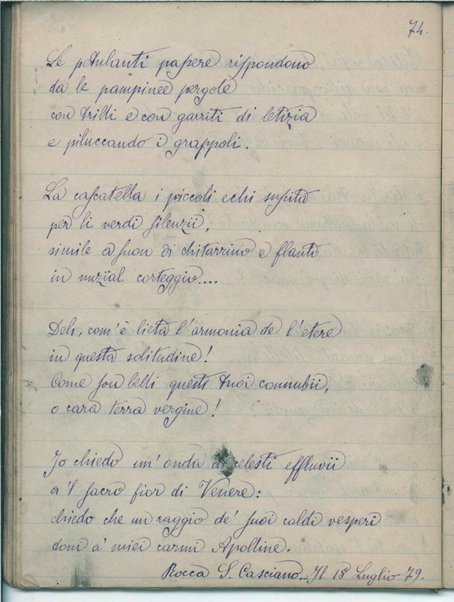 74.
Le petulanti passere rispondono
da le pampinee pergole
con trilli e con garriti di letizia
e piluccando i grappoli.
La cascatella i piccoli echi suscita
per li verdi silenzii,
simile a suon di chitarrino e flauti
in nuzial corteggio....
Deh, com'è lieta l'armonia de l'etere
in questa solitudine!
Come son belli questi tuoi connubii,
o cara terra vergine!
Io chiedo un'onda di celesti effluvii
a 'l sacro fior di Venere:
chiedo che un raggio de' suoi caldi vesperi
doni a' miei carmi Apolline.
Rocca S. Casciano. Il 18 Luglio 79.